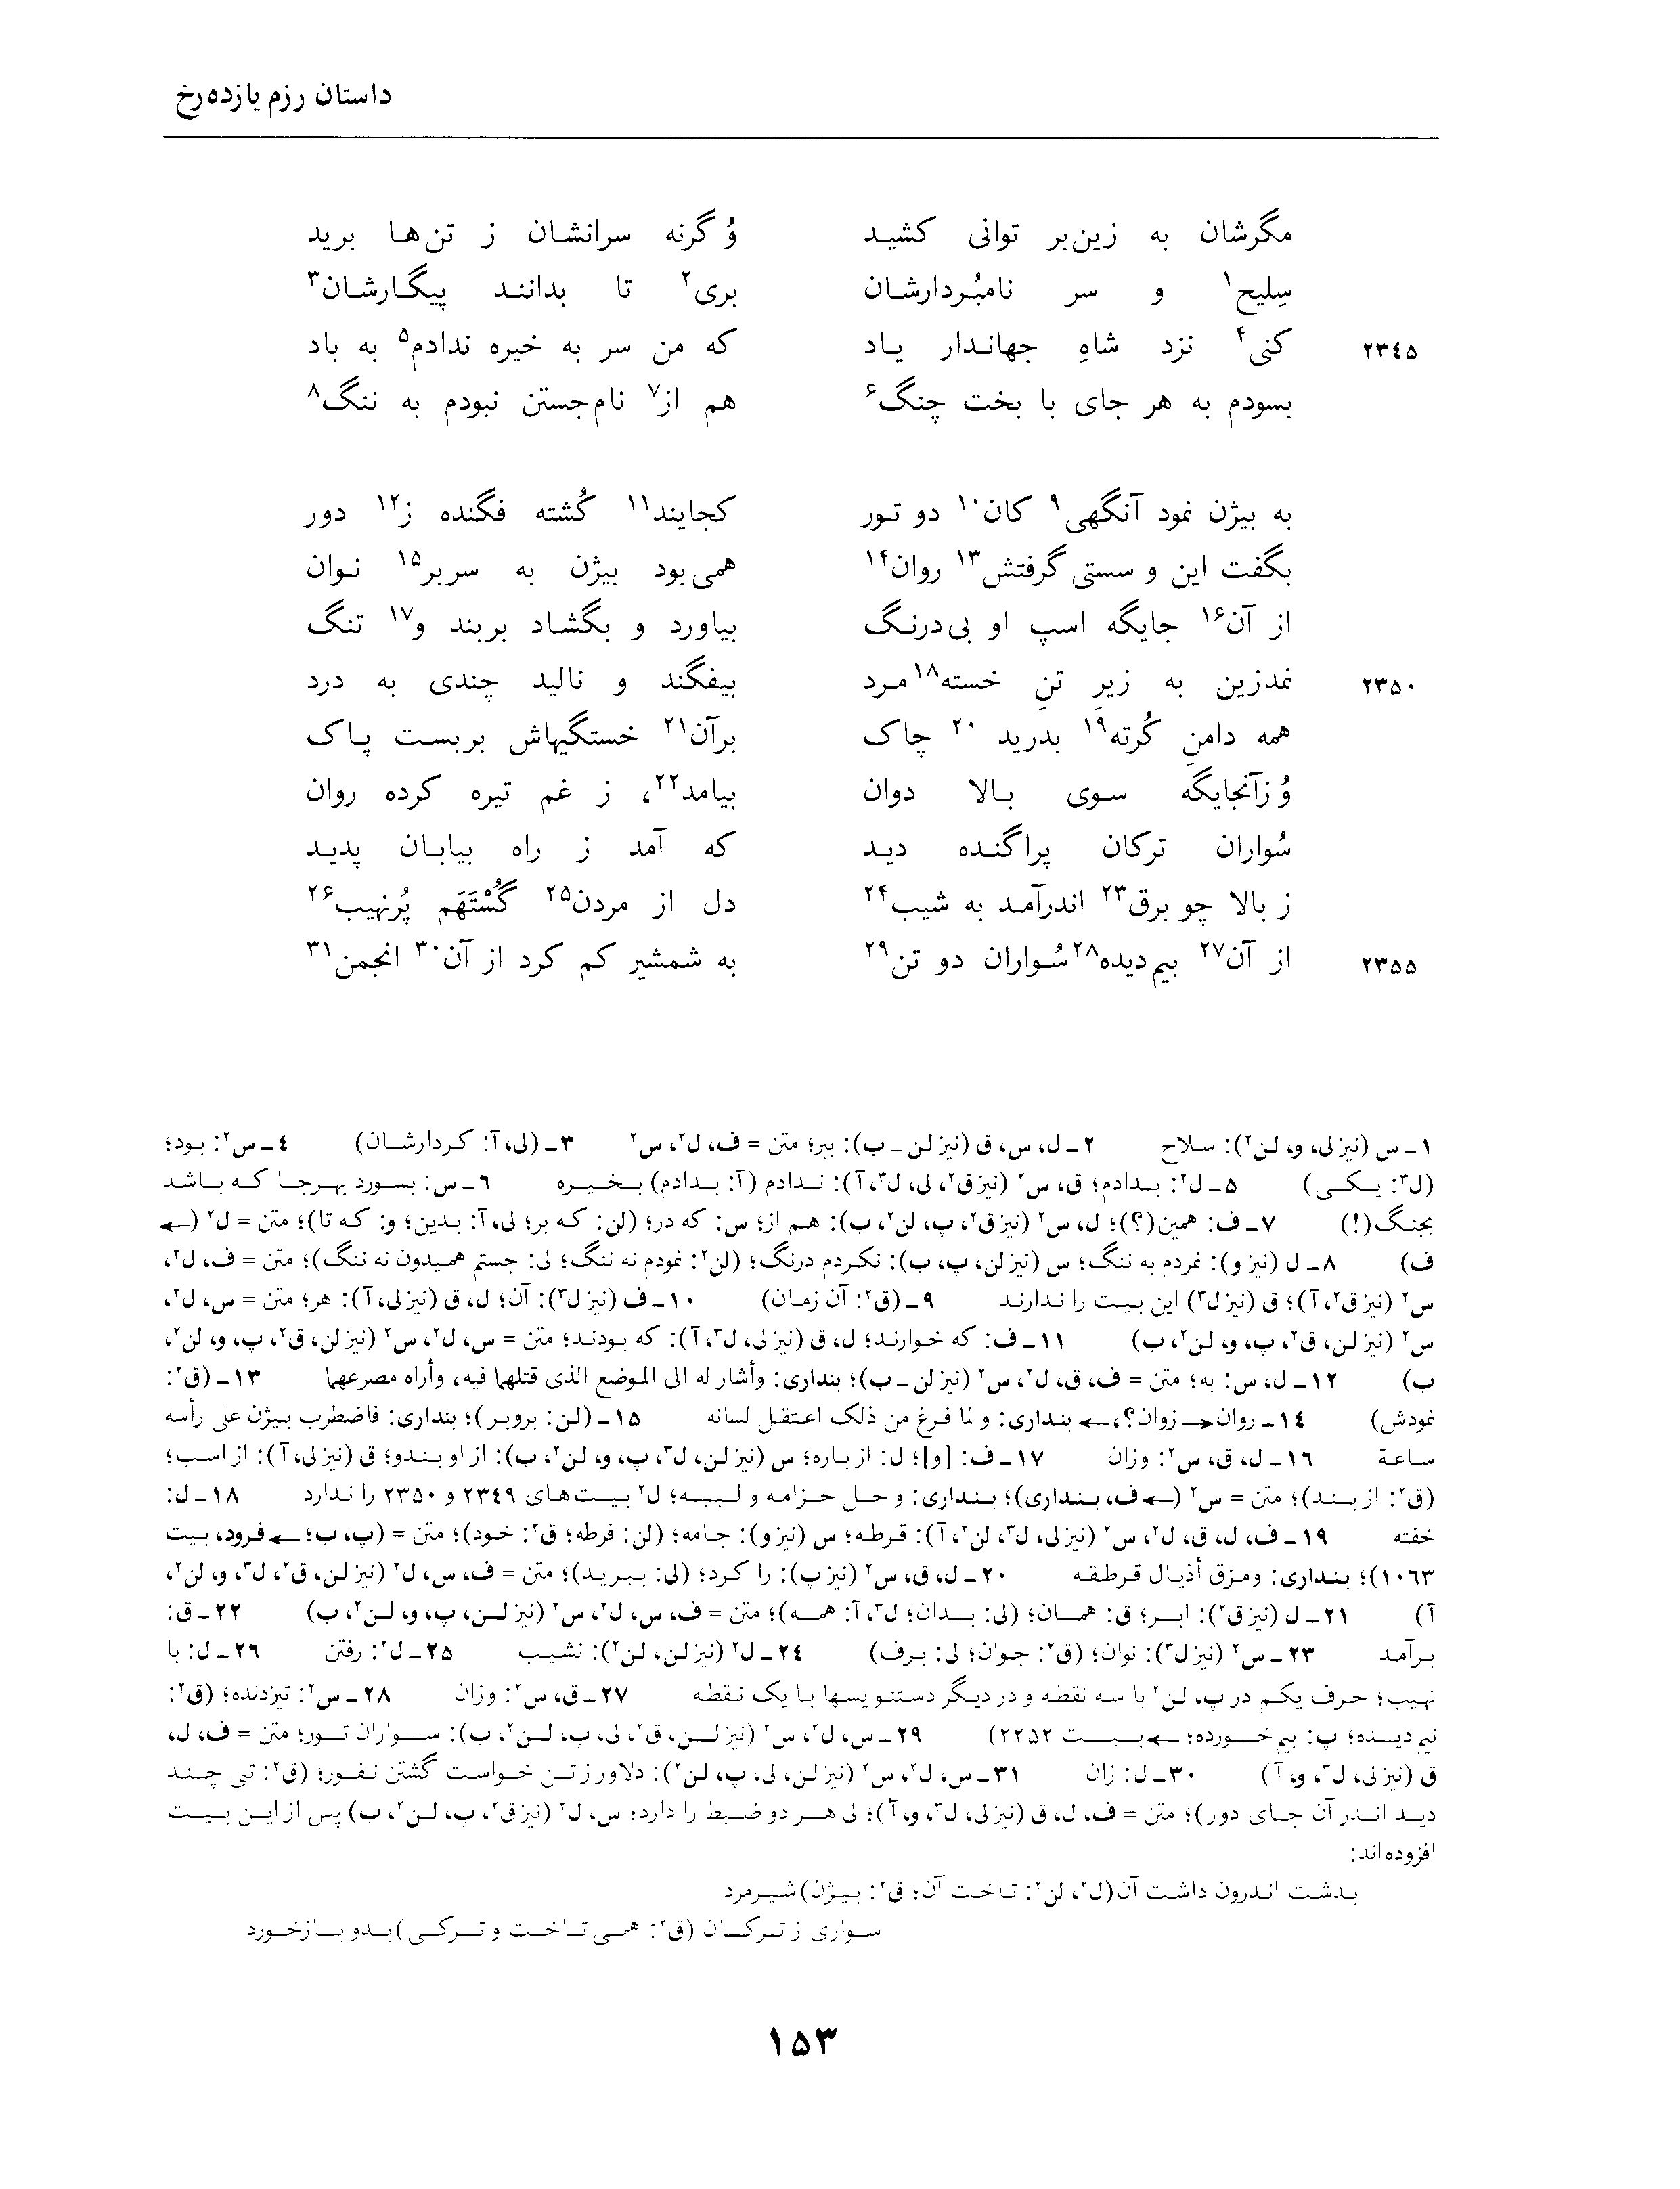 داستان رزم یازده‌رخ
مگرشان به زین‌بر توانی کشید وُگرنه سرانشان ز تن‌ها برید
سِلیح۱ و سر نامبُردارشان بری۲ تا بدانند پیگارشان۳
۲۳۴۵ کنی۴ نزد شاهِ جهاندار یاد که من سر به خیره ندادم۵ به باد
بسودم به هر جای با بخت چنگ۶ هم از۷ نام‌جستن نبودم به ننگ۸
به بیژن نمود آنگهی۹ کان۱۰ دو تور کجایند۱۱ کُشته فگنده ز۱۲ دور
بگفت این و سستی گرفتش۱۳ روان۱۴ همی‌بود بیژن به سربر۱۵ نوان
از آن۱۶ جایگه اسپ او بی‌درنگ بیاورد و بگشاد بربند و۱۷ تنگ
۲۳۵۰ نمدزین به زیرِ تنِ خسته۱۸مرد بیفگند و نالید چندی به درد
همه دامنِ کُرته۱۹ بدرید۲۰ چاک برآن۲۱ خستگیهاش بربست پاک
وُزآنجایگه سوی بالا دوان بیامد۲۲، ز غم تیره کرده روان
سُواران ترکان پراگنده دید که آمد ز راه بیابان پدید
ز بالا چو برق۲۳ اندرآمد به شیب۲۴ دل از مردن۲۵ گُسْتَهَم پُرنهیب۲۶
۲۳۵۵ از آن۲۷ بیم‌دیده۲۸سُواران دو تن۲۹ به شمشیر کم کرد از آن۳۰ انجمن۳۱
۱ـ س (نیز لی، و، لن۲): سلاح ۲ـ ل، س، ق (نیز لن ـ ب): ببر؛ متن = ف، ل۲، س۲ ۳ـ (لی، آ: کردارشان) ۴ـ س۲: بود؛
(ل۳: یکی) ۵ـ ل۲: بدادم؛ ق، س۲ (نیز ق۲، لی، ل۳، آ): ندادم (آ: بدادم) بخیره ۶ـ س: بسورد بهرجا که باشد
بجنگ(!) ۷ـ ف: همین(؟)؛ ل، س۲ (نیز ق۲، پ، لن۲، ب): هم از؛ س: که در؛ (لن: که بر؛ لی، آ: بدین؛ و: که تا)؛ متن = ل۲ (←
ف) ۸ـ ل (نیز و): نمردم به ننگ؛ س (نیز لن، پ، ب): نکردم درنگ؛ (لن۲: نمودم نه ننگ؛ لی: جستم همیدون نه ننگ)؛ متن = ف، ل۲،
س۲ (نیز ق۲، آ)؛ ق (نیز ل۳) این بیت را ندارند ۹ـ (ق۲: آن زمان) ۱۰ـ ف (نیز ل۳): آن؛ ل، ق (نیز لی، آ): هر؛ متن = س، ل۲،
س۲ (نیز لن، ق۲، پ، و، لن۲، ب) ۱۱ـ ف: که خوارند؛ ل، ق (نیز لی، ل۳، آ): که بودند؛ متن = س، ل۲، س۲ (نیز لن، ق۲، پ، و، لن۲،
ب) ۱۲ـ ل، س: به؛ متن = ف، ق، ل۲، س۲ (نیز لن ـ ب)؛ بنداری: وأشار له الی الموضع الذی قتلهما فیه، وأراه مصرعهما ۱۳ـ (ق۲:
نمودش) ۱۴ـ روان ← زوان؟، ← بنداری: و لما فرغ من ذلک اعتقل لسانه ۱۵ـ (لن: بروبر)؛ بنداری: فاضطرب بیژن علی رأسه
ساعة ۱۶ـ ل، ق، س۲: وزان ۱۷ـ ف: [و]؛ ل: از باره؛ س (نیز لن، ل۳، پ، و، لن۲، ب): از او بندو؛ ق (نیز لی، آ): از اسب؛
(ق۲: از بند)؛ متن = س۲ (← ف، بنداری)؛ بنداری: و حل حزامه و لببه؛ ل۲ بیت‌های ۲۳۴۹ و ۲۳۵۰ را ندارد ۱۸ـ ل:
خفته ۱۹ـ ف، ل، ق، ل۲، س۲ (نیز لی، ل۳، لن۲، آ): قرطه؛ س (نیز و): جامه؛ (لن: فرطه؛ ق۲: خود)؛ متن = (پ، ب؛ ← فرود، بیت
۱۰۶۳)؛ بنداری: ومزق أذیال قرطقه ۲۰ـ ل، ق، س۲ (نیز پ): را کرد؛ (لی: ببرید)؛ متن = ف، س، ل۲ (نیز لن، ق۲، ل۳، و، لن۲،
آ) ۲۱ـ ل (نیز ق۲): ابر؛ ق: همان؛ (لی: بدان؛ ل۳، آ: همه)؛ متن = ف، س، ل۲، س۲ (نیز لن، پ، و، لن۲، ب) ۲۲ـ ق:
برآمد ۲۳ـ س۲ (نیز ل۳): نوان؛ (ق۲: جوان؛ لی: برف) ۲۴ـ ل۲ (نیز لن، لن۲): نشیب ۲۵ـ ل۲: رفتن ۲۶ـ ل: با
نهیب؛ حرف یکم در پ، لن۲ با سه نقطه و در دیگر دستنویسها با یک نقطه ۲۷ـ ق، س۲: وزان ۲۸ـ س۲: تیزدیده؛ (ق۲:
نیم دیده؛ پ: بیم خورده؛ ← بیت ۲۲۵۲) ۲۹ـ س، ل۲، س۲ (نیز لن، ق۲، لی، پ، لن۲، ب): سواران تور؛ متن = ف، ل،
ق (نیز لی، ل۳، و، آ) ۳۰ـ ل: زان ۳۱ـ س، ل۲، س۲ (نیز لن، لی، پ، لن۲): دلاور ز تن خواست گشتن نفور؛ (ق۲: تنی چند
دید اندر آن جای دور)؛ متن = ف، ل، ق (نیز لی، ل۳، و، آ)؛ لی هر دو ضبط را دارد؛ س، ل۲ (نیز ق۲، پ، لن۲، ب) پس از این بیت
افزوده‌اند:
بدشت اندرون داشت آن (ل۲، لن۲: تاخت آن؛ ق۲: بیژن) شیرمرد
سواری ز ترکان (ق۲: همی تاخت و ترکی) بدو بازخورد
۱۵۳